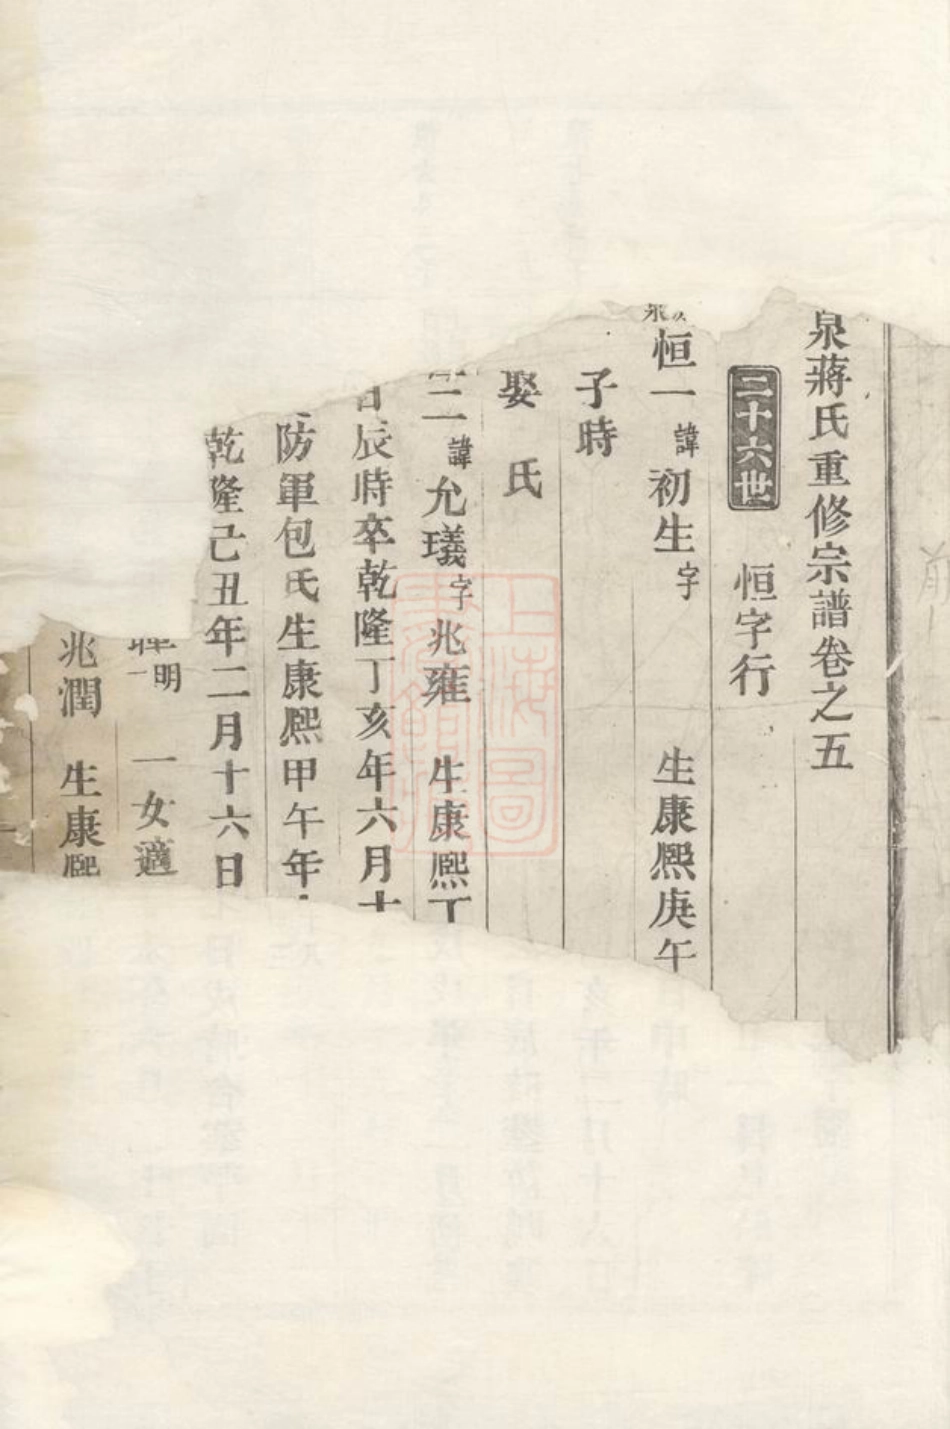 泉蔣氏重修宗譜卷之五
二十六世 恒字行
恒一 諱初生字 生康熙庚午
子時
娶 氏
二 諱允璣字兆雍 生康熙丁
辰時卒乾隆丁亥年六月十
防軍包氏生康熙甲午年
乾隆己丑年二月十六日
明一 一女適
兆潤 生康熙
上海圖書館藏